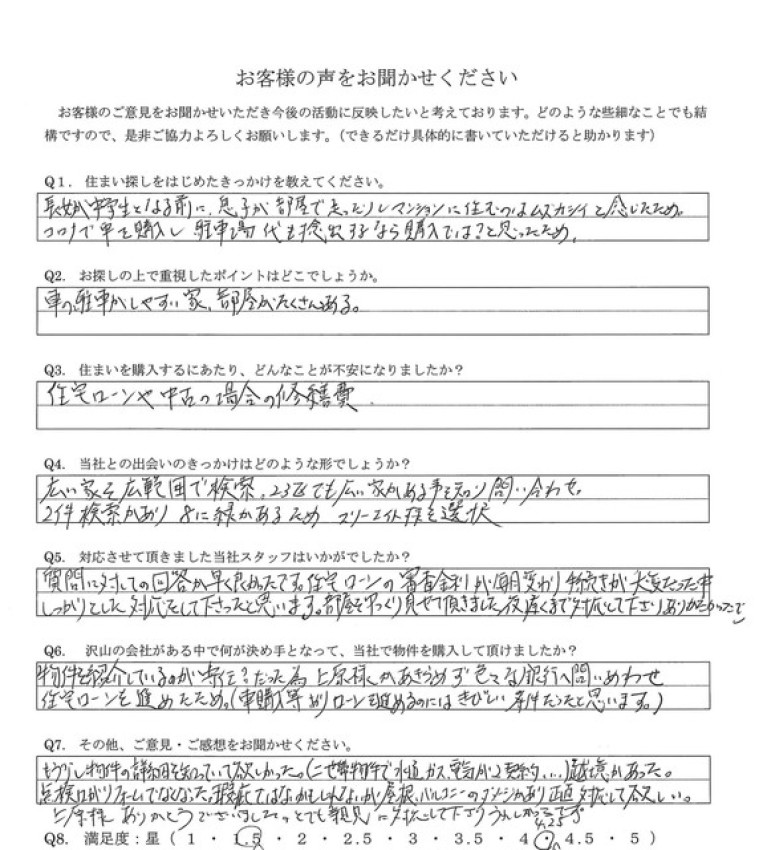 お客様の声をお聞かせください
お客様のご意見をお聞かせいただき今後の活動に反映したいと考えております。どのような些細なことでも結
構ですので、是非ご協力よろしくお願いします。（できるだけ具体的に書いていただけると助かります）
Q1. 住まい探しをはじめたきっかけを教えてください。
長女が中学生となる前に、息子が部屋で走ったりしマンションに住むのはムズカシイと感じたため。
コロナで車を購入し駐車場代も捻出するなら購入では？と思ったため。
Q2. お探しの上で重視したポイントはどこでしょうか。
車の駐車がしやすい家、部屋がたくさんある。
Q3. 住まいを購入するにあたり、どんなことが不安になりましたか？
住宅ローンや中古の場合の修繕費.
Q4. 当社との出会いのきっかけはどのような形でしょうか？
広い家を広範囲で検索、23区でも広い家がある事を知り問い合わせ。
2件検索があり 8に縁があるため スリーエイト様を選択
Q5. 対応させて頂きました当社スタッフはいかがでしたか？
質問に対しての回答が早く良かったです。住宅ローンの審査金利が毎月変わり手続きが大変だった中
しっかりとした対応をして下さったと思います。部屋をゆっくり見せて頂きました。夜遅くまで対応して下さりありがたかったです
Q6. 沢山の会社がある中で何が決め手となって、当社で物件を購入して頂けましたか？
物件を紹介しているのが専任？だった為 上原様があきらめず色々な銀行へ問い合わせ
住宅ローンを進めたため。（車購入等がローンを進めるのにはきびしい条件だったと思います。）
Q7. その他、ご意見・ご感想をお聞かせください。
もう少し物件の詳細を知っていて欲しかった。（二世帯物件で水道、ガス、電気が2契約、...）越境があった。
点検口がリフォームでなくなった。瑕疵ではないかもしれないが屋根、バルコニーのダメージがあり正直対応して欲しい。
上原様 ありがとうございました。とても親身に対応して下さりうれしかったです
Q8. 満足度：星（ 1 ・ 1.5 ・ 2 ・ 2.5 ・ 3 ・ 3.5 ・ 4 ・ 4.5 ・ 5 ）